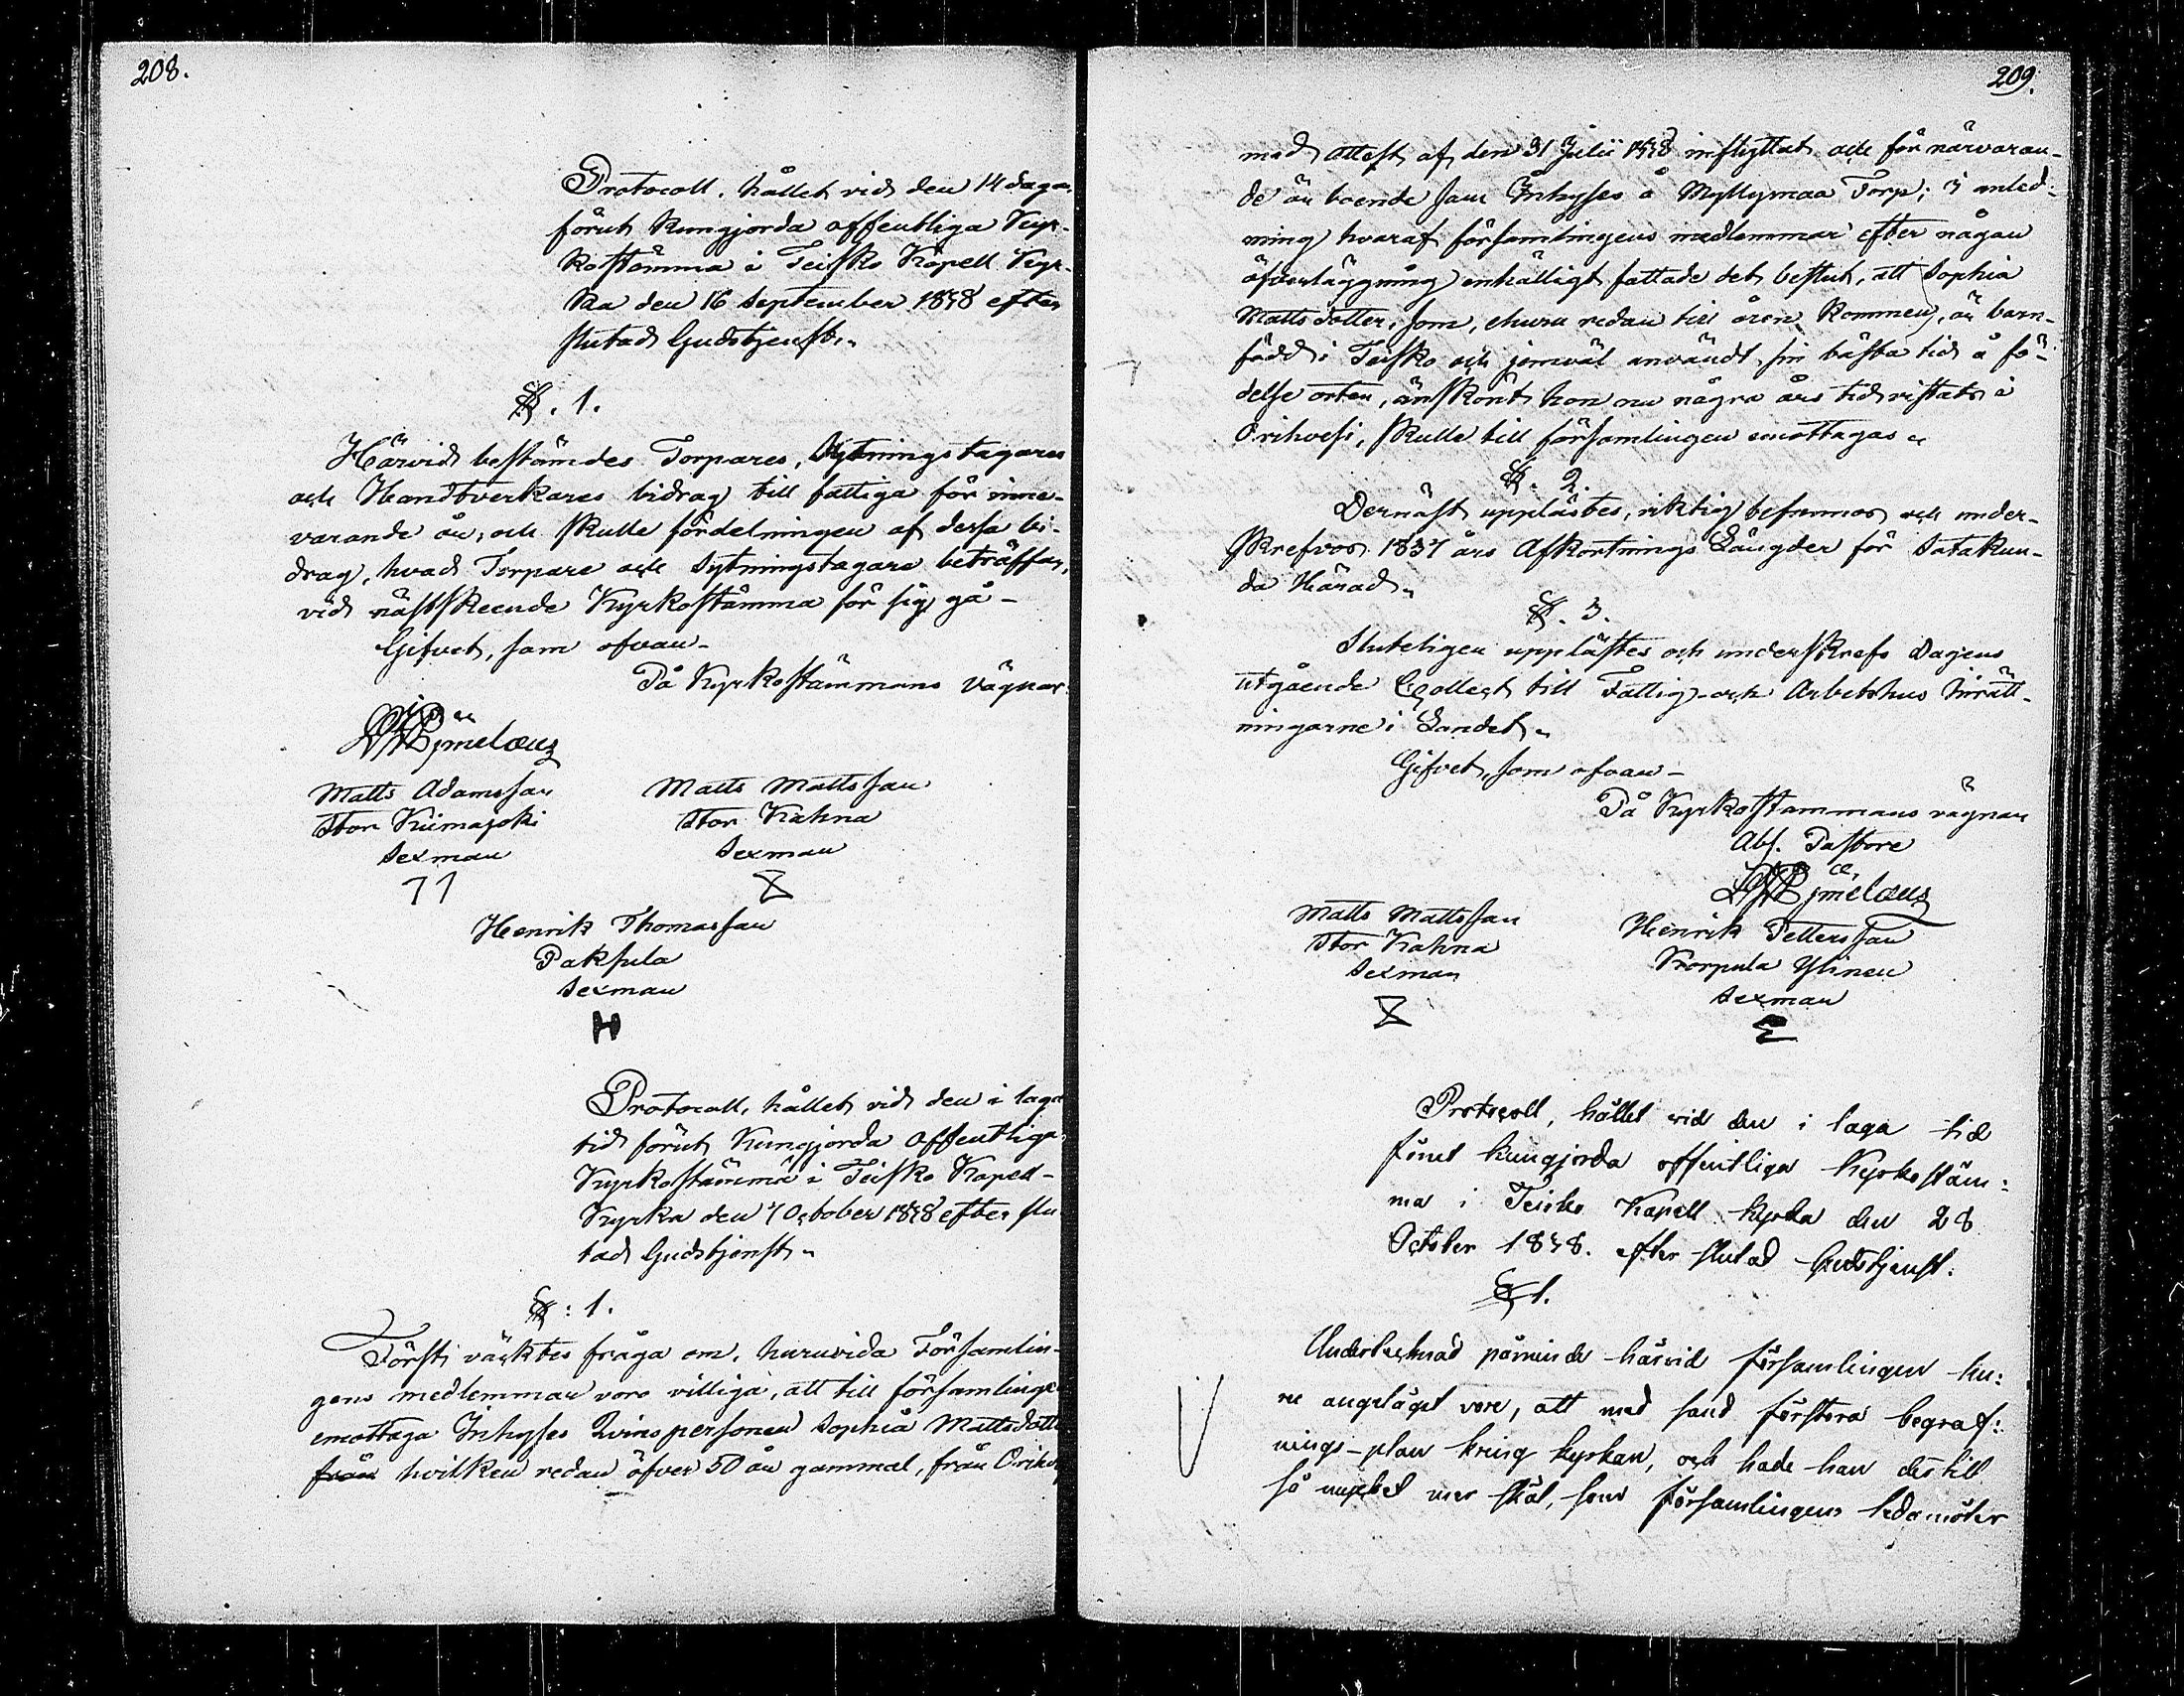 208.
Protocoll, hållet vid den 14 daga
förut kungjorda offentliga Kyr-
kostämma i Teisko Kapell Kyr-
ka den 16 September 1838 efter
slutad Gudstjenst.
§. 1.
Härvid bestämdes Torpares, Sytningstagares
och Handtverkares bidrag till fattiga för inne-
varande år, och skulle fördelningen af dessa bi-
drag, hvad Torpare och Sytningstagare beträffar,
vid nästskeende Kyrkostämma för sig gå -
Gifvet, som ofvan -
På Kyrkostämmans vägnar
Matts Adamsson
Stor Kiimajoki
Sexman
Matts Mattsson
Stor Kahna
Sexman
Henrik Thomasson
Paksula
Sexman
H
Protocoll, hållet vid den i laga
tid förut Kungjorda offentliga
Kyrkostämma i Teisko Kapell-
Kyrka den 7 October 1838 efter slu
tad Gudstjenst.
§: 1.
Först väcktes fråga om, huruvida Församlin-
gens medlemmar voro villiga, att till församlinge
emottaga Inhyses Qvinspersonen Sophia Mattsdott
från hvilken redan öfver 50 år gammal, från Orihv
209.
med attest af den 31 Julii 1838 inflyttat och för närvaran-
de är boende som Inhyses å Myllymaa Torp; i anled-
ning hvaraf församlingens medlemmar efter någon
öfverläggning enhälligt fattade det beslut, att Sophia
Mattsdotter, som, ehuru redan till åren kommen, är barn-
född i Teisko och jemväl användt sin bästa tid å fö-
delse orten, änskönt hon nu några års tid vistats i
Orihvesi, skulle till församlingen emottagas.
§. 2.
Dernäst upplästes, riktig befunnos och under-
skrefvos 1837 års Afkortnings Längder för Satakun-
da Härad.
§. 3.
Sluteligen upplästes och underskrefs Dagens
utgående Collect till Fattig- och Arbetshus Inrätt-
ningarne i Landet.
Gifvet, som ofvan -
På Kyrkostämmans vägnar
Abs. Pastore
Matts Mattsson
Stor Kahna
Sexman
Henrik Pettersson
Korpula Ylinen
Sexman
Protocoll, hållet vid den i laga tid
förut kungjorda offentliga Kyrkostäm:
ma i Teisko Kapell kyrka den 28
October 1838. efter slutad Gudstjenst.
§ 1.
Undertecknad påminde härvid församlingen hu:
ru angeläget vore, att med sand förstora begraf:
nings-plan kring kyrkan, och hade han dertill
så mycket mer skäl, som församlingens ledamöter